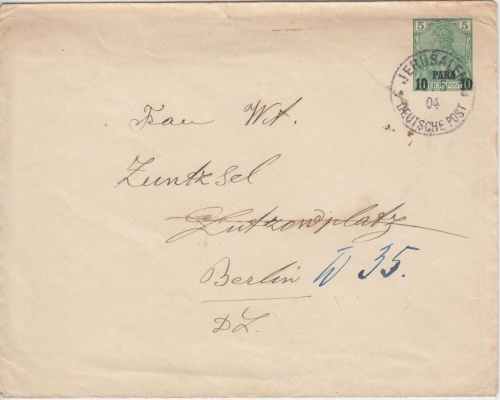 5 5
10 PARA 10
JERUSALEM
04
DEUTSCHE POST
Frau Wt.
Zuntzsel
Lützowplatz
Berlin W 35.